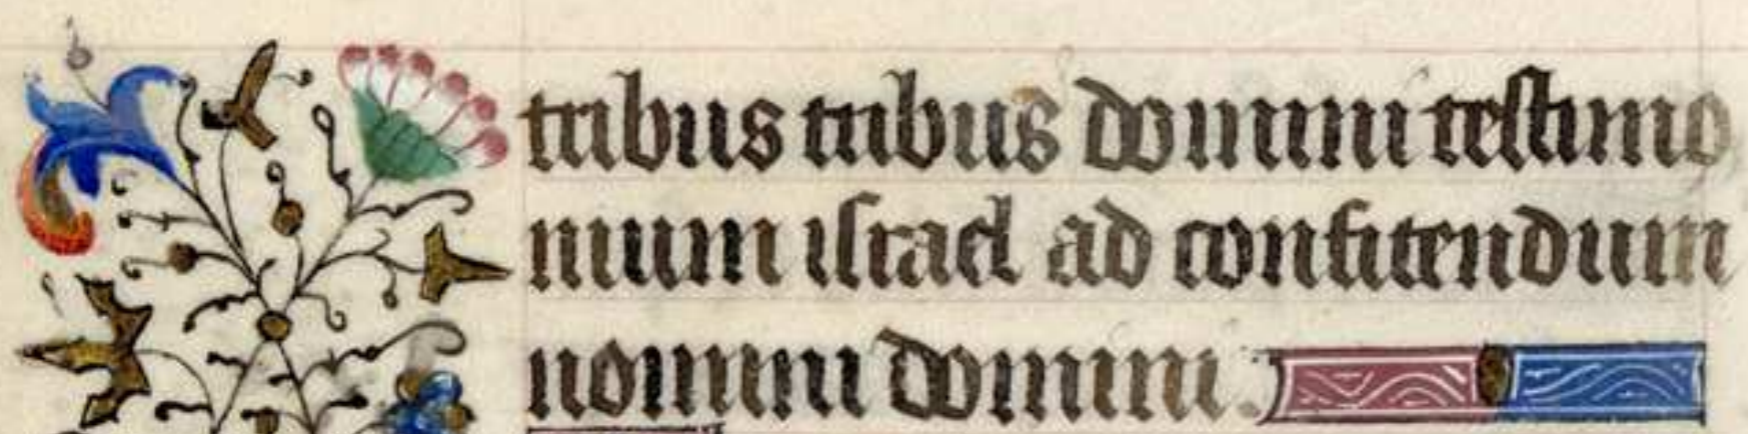 tribus tribus domini testimo
nium israel ad confitendum
nomini domini.